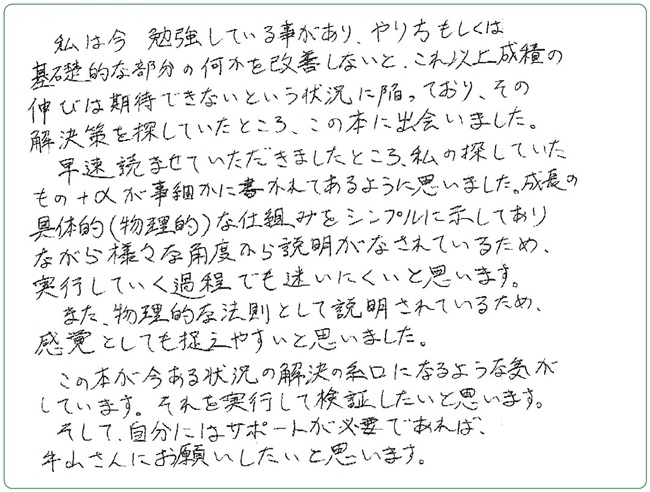 私は今 勉強している事があり、やり方もしくは
基礎的な部分の何かを改善しないと、これ以上成積の
伸びは期待できないという状況に陥っており、その
解決策を探していたところ、この本に出会いました。
早速読ませていただきましたところ、私の探していた
もの+αが事細かに書かれてあるように思いました。成長の
具体的(物理的)な仕組みをシンプルに示してあり
ながら様々な角度から説明がなされているため、
実行していく過程でも迷いにくいと思います。
また、物理的な法則として説明されているため、
感覚としても捉えやすいと思いました。
この本が今ある状況の解決の糸口になるような気が
しています。それを実行して検証したいと思います。
そして、自分にはサポートが必要であれば、
牛山さんにお願いしたいと思います。